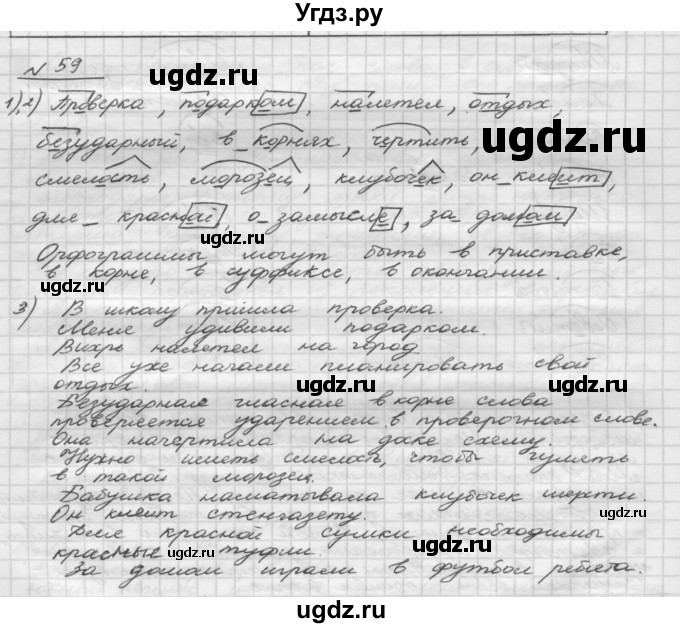 Угдз.ру
№ 59
1), 2) Проверка, подарком, налетел, отдых,
безударный, в корнях, чертить,
смелость, морозец, клубочек, он клеит,
для красной, о замысле, за домом
Орфограммы могут быть в приставке,
в корне, в суффиксе, в окончании.
3) В школу пришла проверка.
Меня удивили подарком.
Вихрь налетел на город.
Все уже начали планировать свой
отдых.
Безударная гласная в корне слова
проверяется ударением в проверочном слове.
Она начертила на доске схему.
Нужно иметь смелость, чтобы гулять
в такой морозец.
Бабушка насматывала клубочек шерсти.
Он клеит стенгазету.
Для красной сумки необходимы
красные туфли.
За домом играли в футбол ребята.
ugdz.ru
ugdz.ru
ugdz.ru
ugdz.ru
ugdz.ru
ugdz.ru
ugdz.ru
ugdz.ru
ugdz.ru
ugdz.ru
ugdz.ru